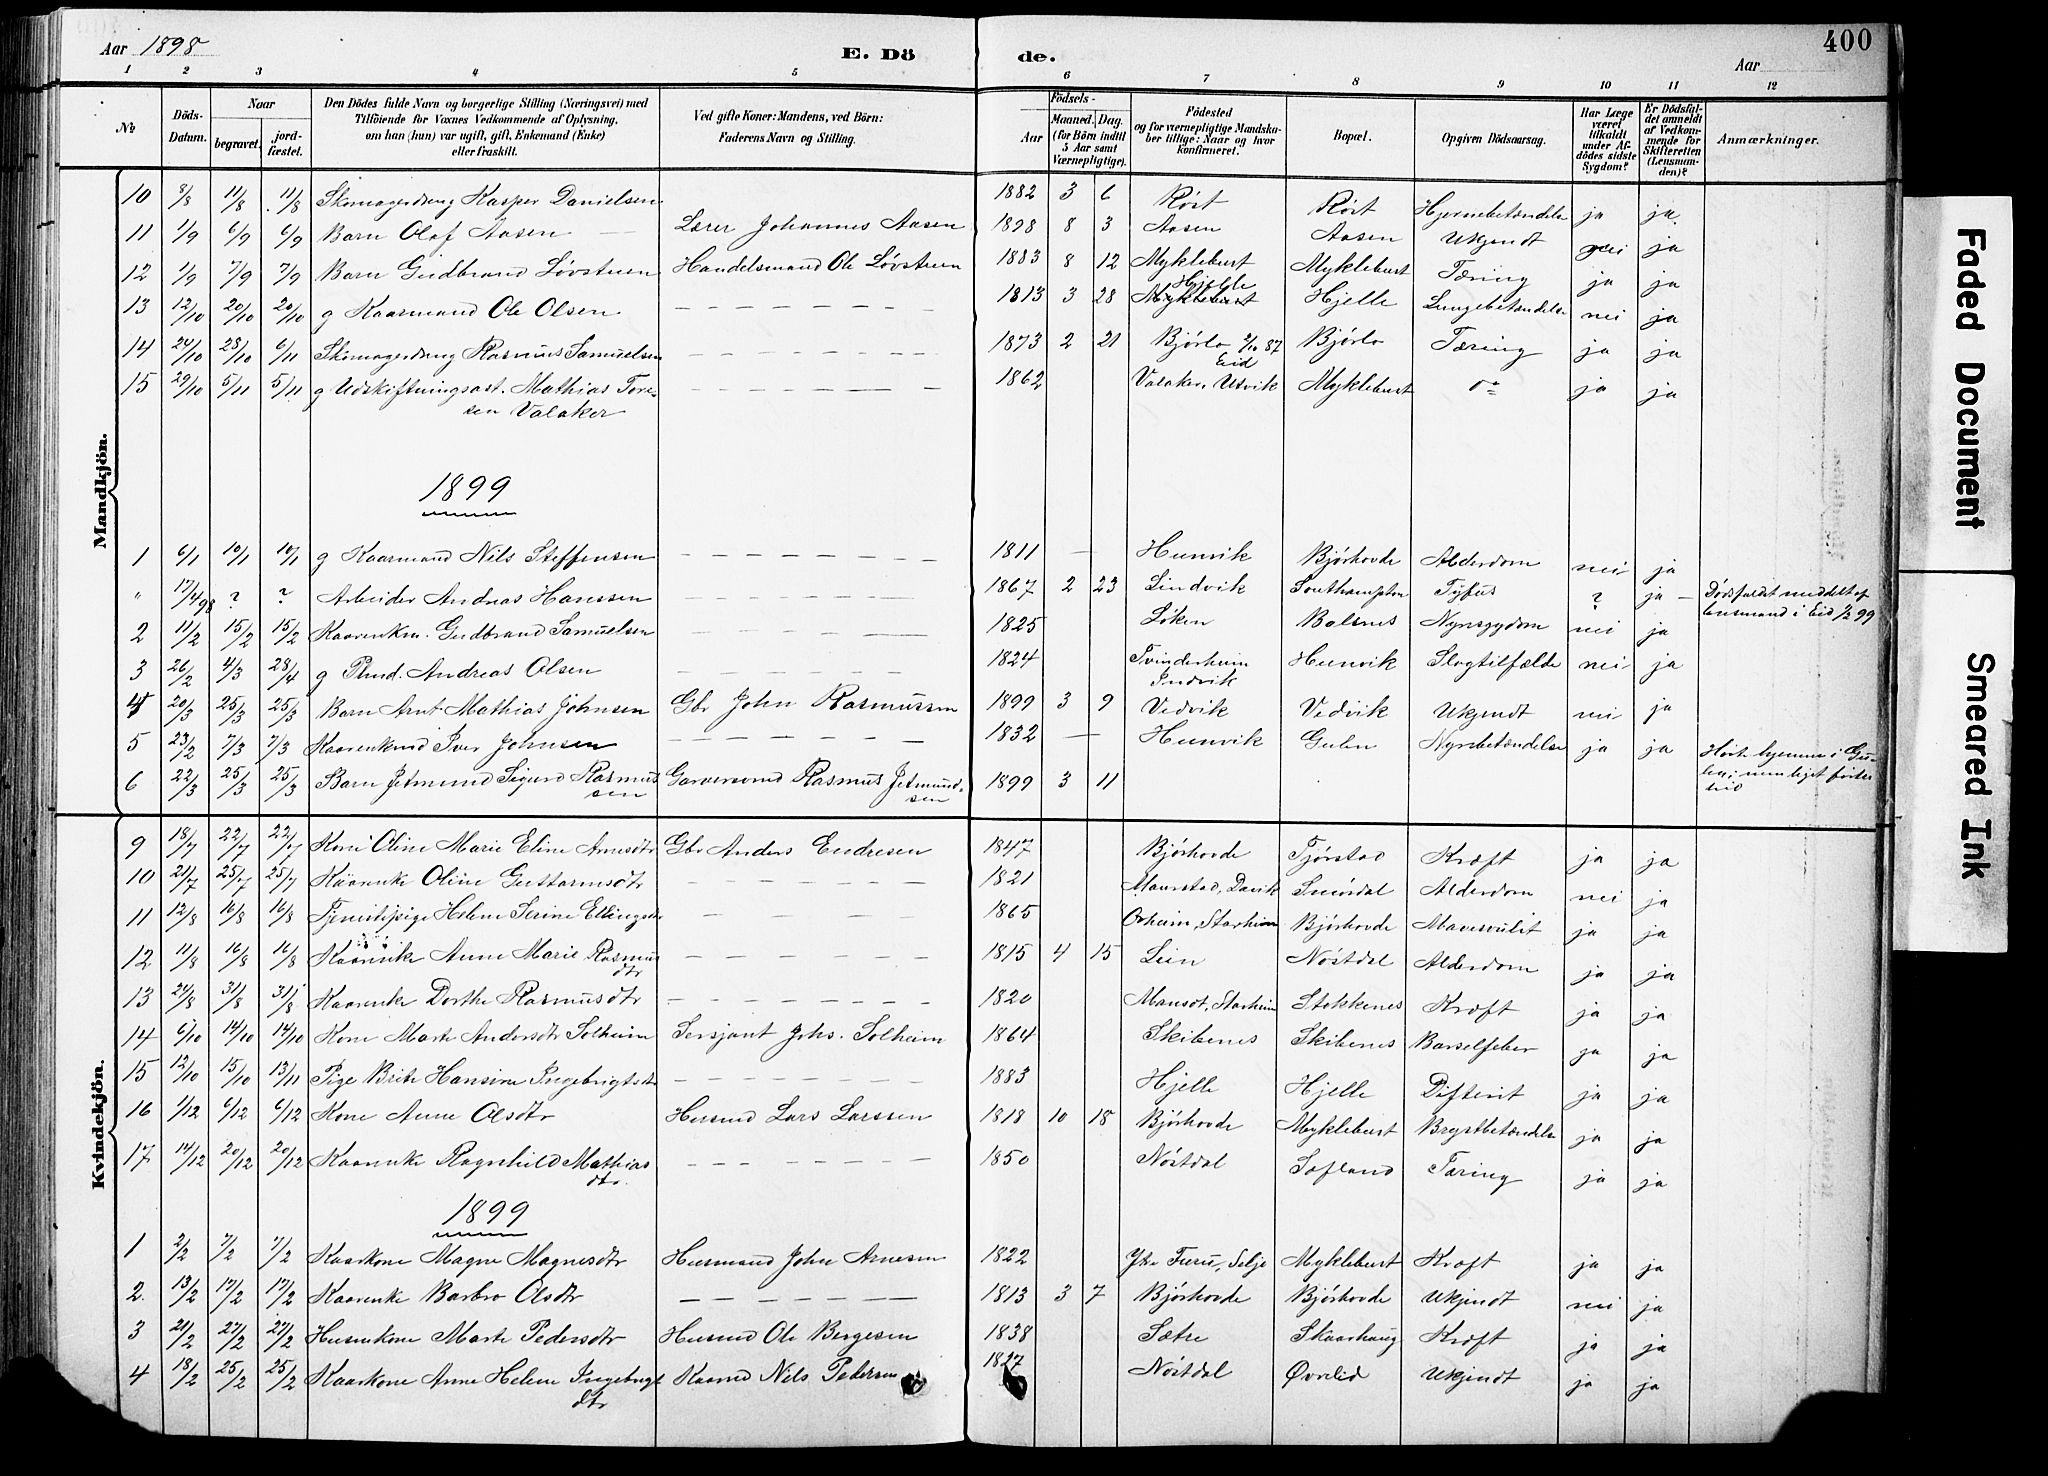 Aar 1898
E. Dö
de.
Aar
400
1 2 3 4 5 6 7 8 9 10 11 12
№
Döds-Datum.
Naar
begravet.
jord-fæstet.
Den Dödes fulde Navn og borgerlige Stilling (Næringsvei) med
Tilföiende för Voxnes Vedkommende af Oplysning,
om han (hun) var ugift, gift, Enkemand (Enke)
eller fraskilt.
Ved gifte Koner: Mandens, ved Börn:
Faderens Navn og Stilling.
Födsels-
Aar
Maaned. Dag.
(for Börn indtil
5 Aar samt
Værnepligtige).
Födested
og for værnepligtige Mandska-
ber tillige: Naar og hvor
konfirmeret.
Bopæl.
Opgiven Dödsaarsag.
Har Læge
været
tilkaldt
under Af-
dödes sidste
Sygdom?
Er Dödsfal-
det anmeldt
af Vedkom-
mende for
Skifteretten
(Lensman-
den)?
Anmærkninger.
Mandkjön.
10 8/8 11/8 11/8 Skomagerdreng Kasper Danielsen 1882 3 6 Røst Røst Hjernebetændelse ja ja
11 1/9 6/9 6/9 Barn Olaf Aasen Lærer Johannes Aasen 1898 8 3 Aasen Aasen Ukjendt nei ja
12 1/9 7/9 7/9 Barn Gudbrand Løvstuen Handelsmand Ole Løvstuen 1883 8 12 Myklebust Myklebust Tæring ja ja
13 12/10 20/10 20/10 g Kaarmand Ole Olsen 1813 3 28 Hjelle Hjelle Lungebetændelse nei ja
14 24/10 28/10 6/11 Skomagerdreng Rasmus Samuelsen 1873 2 21 Bjørlo 2/10 87 Bjørlo Tæring ja ja
Eid
15 29/10 5/11 5/11 g Udskiftningsast. Mathias Tore- 1862 Valaker, Utvik Myklebust do ja ja
sen Valaker
1899
1 6/1 10/1 10/1 g Kaarmand Nils Steffensen 1811 Hunvik Bjørhovde Alderdom nei ja
" 17/4 98 ? ? Arbeider Andreas Hanssen 1867 2 23 Lindvik Southampton Tyfus ? ja Dødsfaldet meddelt af
lensmand i Eid 1/2 99
2 11/2 15/2 15/2 Kaarenkm. Gudbrand Samuelsen 1825 Løken Balsnes Nyresygdom nei ja
3 26/2 4/3 28/4 g Plmd. Andreas Olsen 1824 Tvinderheim Hunvik Slagtilfælde nei ja
Indvik
4 20/3 25/3 25/3 Barn Arnt Mathias Johnsen Gbr John Rasmussen 1899 3 9 Vedvik Vedvik Ukjendt nei ja
5 23/2 7/3 7/3 Kaarenkmd Iver Johnsen 1832 Hunvik Gulen Nyrebetændelse ja ja
6 22/3 25/3 25/3 Barn Jetmund Sigurd Rasmus Garversvend Rasmus Jetmund- 1899 3 11
sen sen
Kvindekjön.
9 18/7 22/7 22/7 Kone Oline Marie Eline Arnesdtr Gbr Anders Endresen 1847 Bjørhovde Fjørstad Kræft ja ja
10 21/7 25/7 25/7 Kaarenke Oline Gustavusdtr 1821 Maurstad, Davik Smørdal Alderdom nei ja
11 12/8 16/8 16/8 Tjenestepige Helene Serine Ellingsdtr 1865 Orheim, Starheim Bjørhovde Mavesvulst ja ja
12 11/8 16/8 16/8 Kaarenke Anne Marie Rasmus 1815 4 15 Leen Nøstdal Alderdom ja ja
dtr
13 24/8 31/8 31/8 Kaarenke Dorthe Rasmusdtr 1820 Starheim Stokkenes Kræft ja ja
14 6/10 14/10 14/10 Kone Marte Andersdtr Solheim Sersjant Johs. Solheim 1864 Skibenes Skibenes Barselfeber ja ja
15 12/10 15/10 13/11 Pige Brite Hansine Ingebrigtsdtr 1883 Hjelle Hjelle Difterit ja ja
16 1/12 6/12 6/12 Kone Anne Olsdtr Husmd Lars Larssen 1818 10 18 Bjørhovde Myklebust Brystbetændelse ja ja
17 14/12 20/12 20/12 Kaarenke Ragnhild Mathias 1850 Nøstdal Sæfland Tæring ja ja
dtr.
1899
1 2/2 7/2 7/2 Kaarkone Magne Magnesdtr Husmand John Arnesen 1822 Ytre Furu, Selje Myklebust Kræft ja ja
2. 13/2 17/2 17/2 Kaarenke Barbro Olsdtr 1813 3 7 Bjørhovde Bjørhovde Ukjendt nei ja
3 21/2 27/2 27/2 Husmkone Marte Pedersdtr Husmd Ole Bergesen 1838 Sætre Skaarhaug Kræft ja ja
4 18/2 25/2 25/2 Kaarkone Anne Helene Ingebrigt Kaarmd Nils Pedersen 1827 Nøstdal Øvrelid Ukjendt ja ja
dtr
Faded Document
Smeared Ink